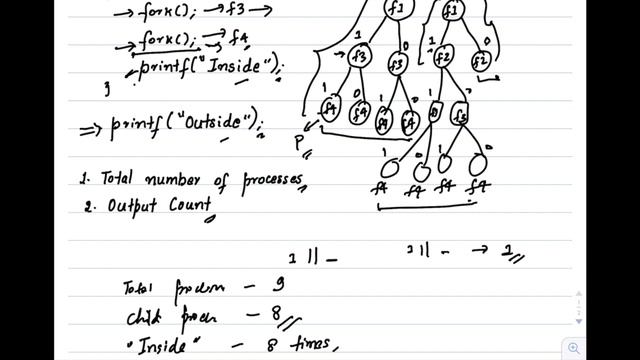 → fork(); → f3 →
→ fork(); → f4
printf("Inside");
}
⇒ printf("Outside");
1. Total number of processes
2. Output Count
f1
1
f3
0
f3
1
f4
0
f4
1
f4
0
f4
P
f1
1
f2
0
f2
1
f3
1
f4
0
f4
1
f4
0
f4
1 || _
1 || _ → 1
Total – 9
Child – 8
"Inside" – 8 times